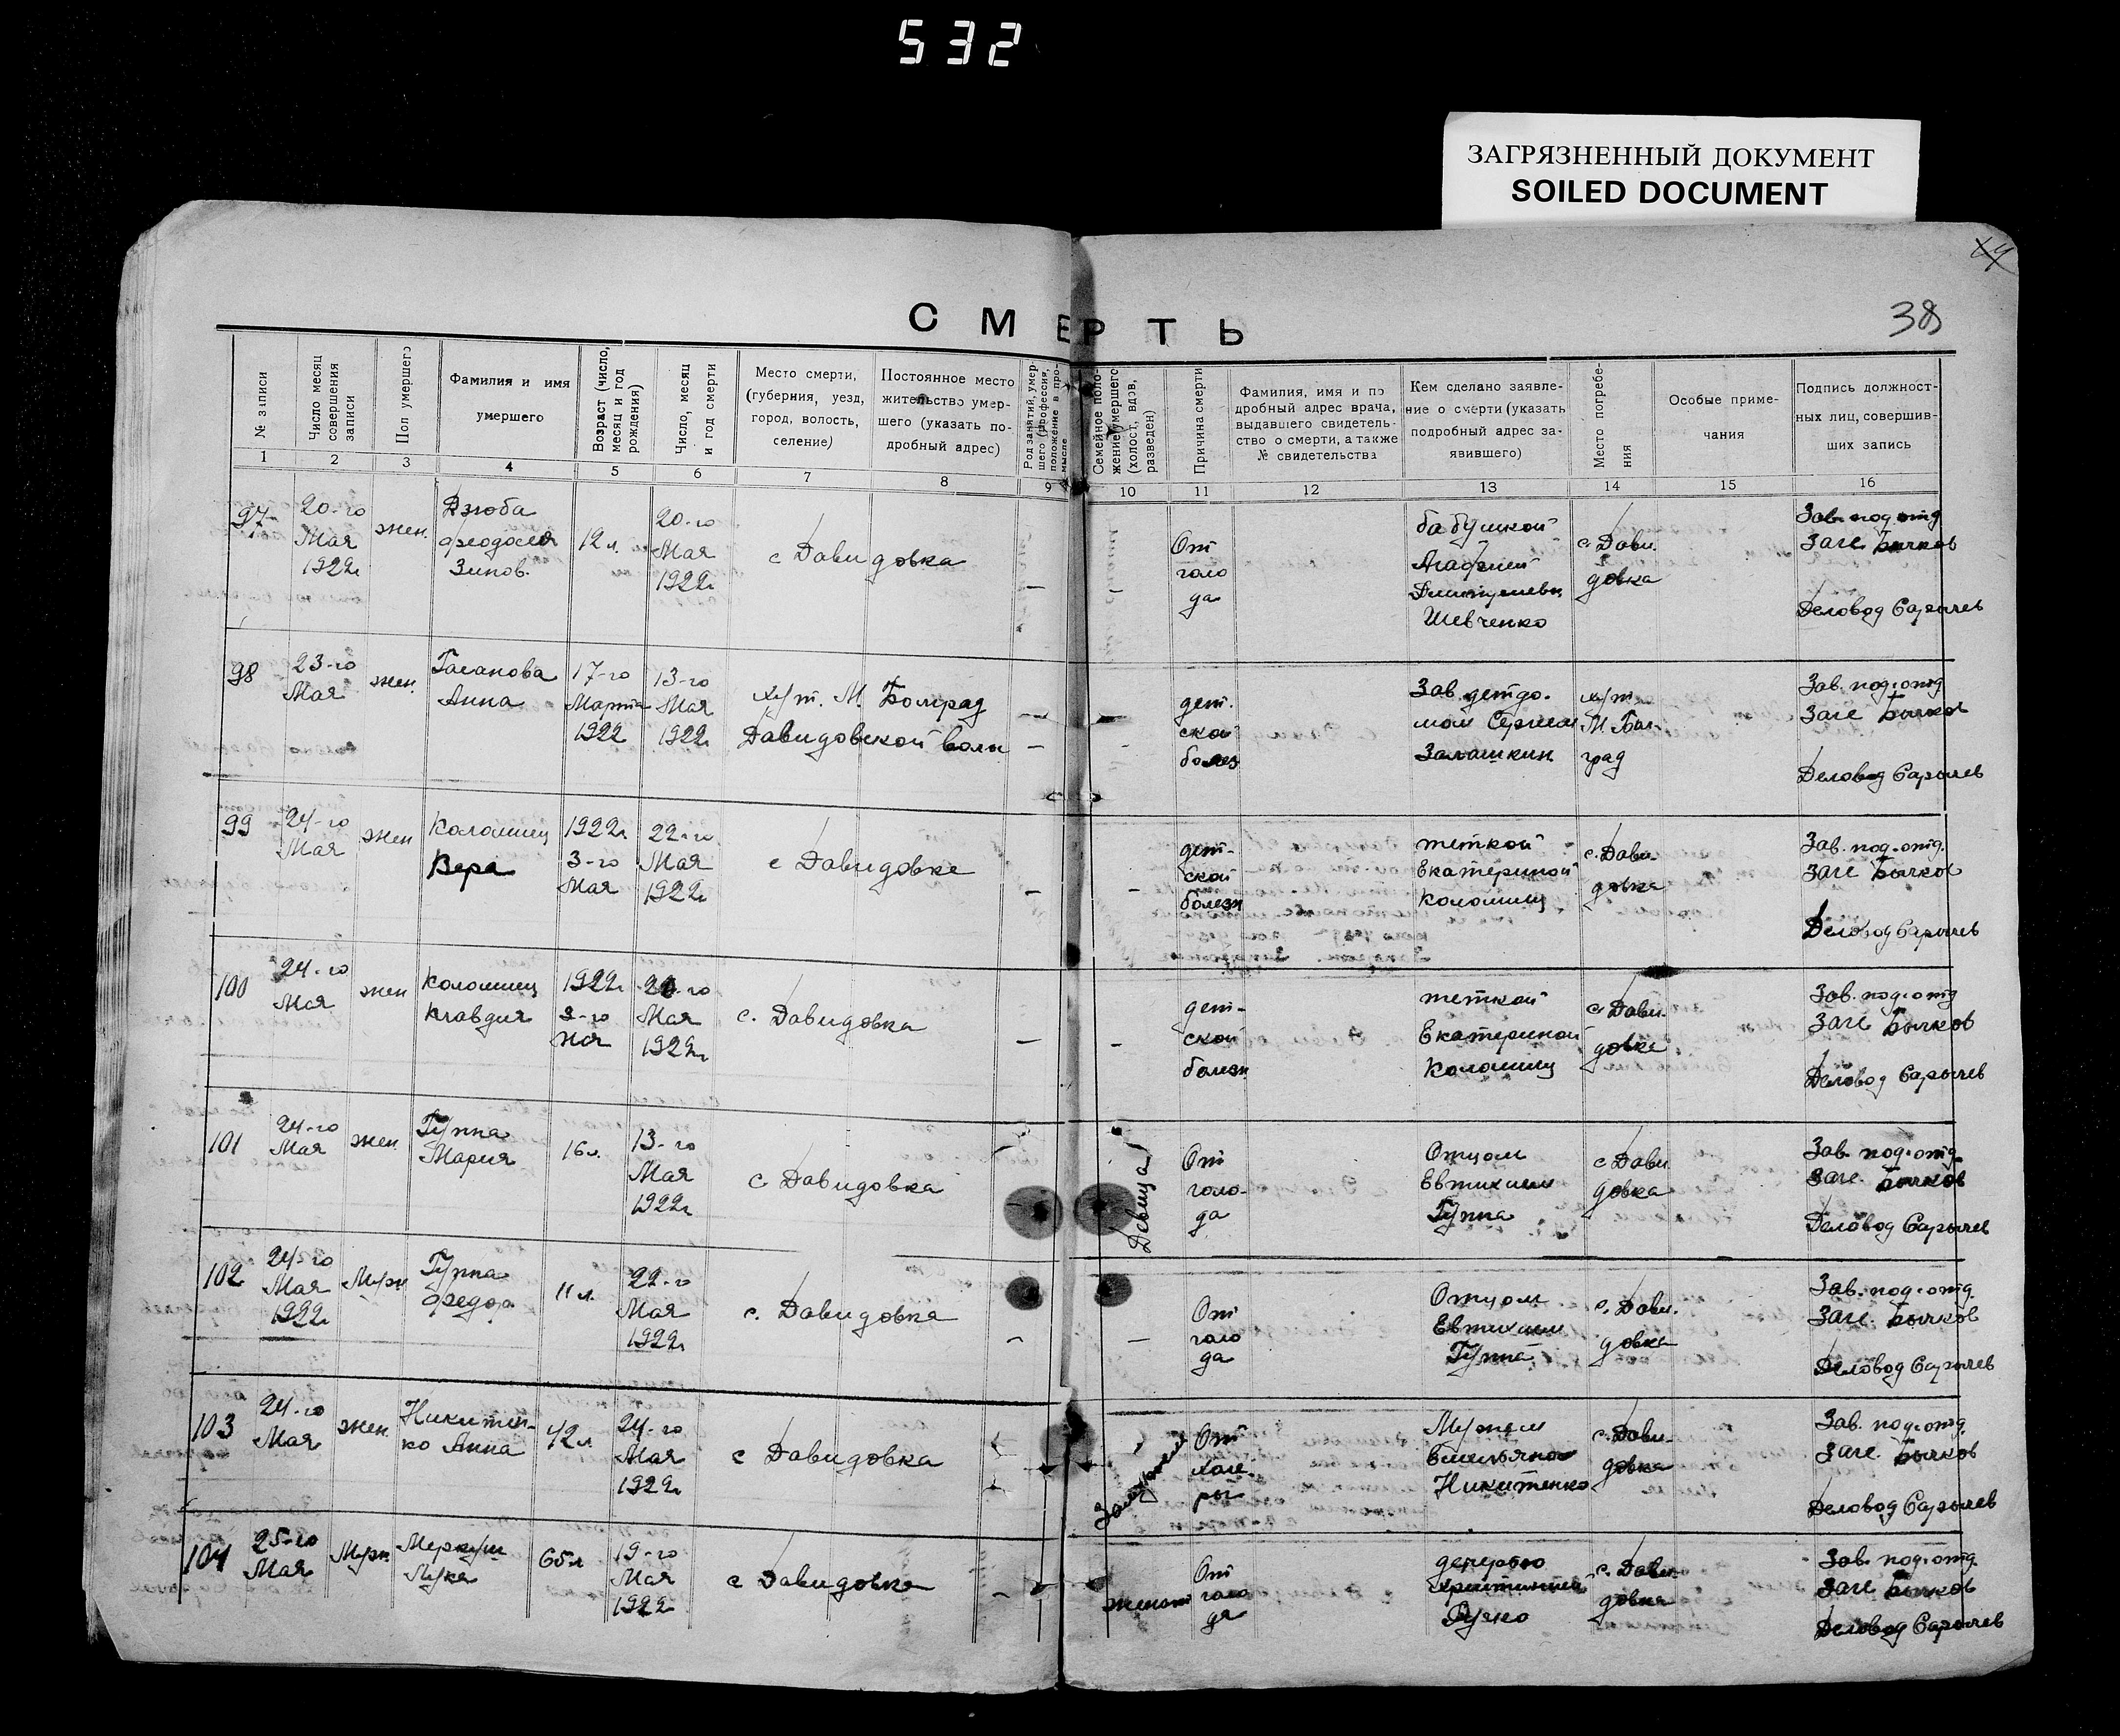 532
ЗАГРЯЗНЕННЫЙ ДОКУМЕНТ
SOILED DOCUMENT
38
СМЕРТЬ
№ записи
Число месяц совершения записи
Пол умершего
Фамилия и имя умершего
Возраст (число, месяц и год рождения)
Число, месяц и год смерти
Место смерти, (губерния, уезд, город, волость, селение)
Постоянное место жительство умершего (указать подробный адрес)
Род занятий, умершего (профессия, положение в промысле
Семейное положение умершего (холост, вдов, разведен)
Причина смерти
Фамилия, имя и подробный адрес врача, выдавшего свидетельство о смерти, а также № свидетельства
Кем сделано заявление о смерти (указать подробный адрес заявившего)
Место погребения
Особые примечания
Подпись должностных лиц, совершивших запись
1 2 3 4 5 6 7 8 9 10 11 12 13 14 15 16
97
20-го
Мая
1922г
жен.
Дзюба
Феодосия
Зинов.
12 л.
20-го
Мая
1922г
с Давидовка
От
голо
да
бабушкой
Агафией
Шевченко
с. Дави.
довка
Зав. под. отд
Загс Бычков
Деловод Сарычев
98
23-го
Мая
жен.
Анна
17-го
Марта
1922
13-го
Мая
1922г
хут. М. Болград
Давидовской волн
дет.
ской
болез
Зав. детдо.
мом Сергеем
Залашкин
хут.
М. Бол.
град
Зав. под. отд
Загс Бычков
Деловод Сарычев
99
24-го
Мая
жен
Коломиец
Вера
1922г
3-го
Мая
22-го
Мая
1922г
с Давидовке
дет-
ской
болезн
теткой
Екатериной
Коломиец
с. Дави-
довка
Зав. под. отд.
Загс Бычков
Деловод Сарычев
100
24-го
Мая
жен
Коломиец
Клавдия
1922г
3-го
Мая
Мая
1922г
с. Давидовка
дет-
ской
болезн
теткой
Екатериной
Коломиец
с. Дави-
довке
Зав. под. отд
Загс Бычков
Деловод Сарычев
101
24-го
Мая
жен.
Гуппа
Мария
16 л.
13-го
Мая
1922г
с Давидовка
Девица
От
голо-
да
Отцом
Евтихием
Гуппа
с Дави
довка
Зав. под. отд.
Загс. Бычков
Деловод Сарычев
102
24-го
Мая
1922г
Муж
Гуппа
Федор
11 л.
22-го
Мая
1922г
с. Давидовка
От
голо
да
Отцом
Евтихием
Гуппа
с. Дави.
довка
Зав. под. отд.
Загс. Бычков
Деловод Сарычев
103
24-го
Мая
жен
Никитен-
ко Анна
42 л
24-го
Мая
1922г
с Давидовка
От
холе-
ры
Мужем
Никитенко
с. Дави-
довка
Зав. под. отд.
Загс. Бычков
Деловод Сарычев
104
25-го
Мая
Муж.
Меркуш
Лука
65 л
19-го
Мая
1922
с Давидовка
женат
От
голо
да
с. Дави-
довка
Зав. под. отд.
Загс Бычков
Деловод Сарычев